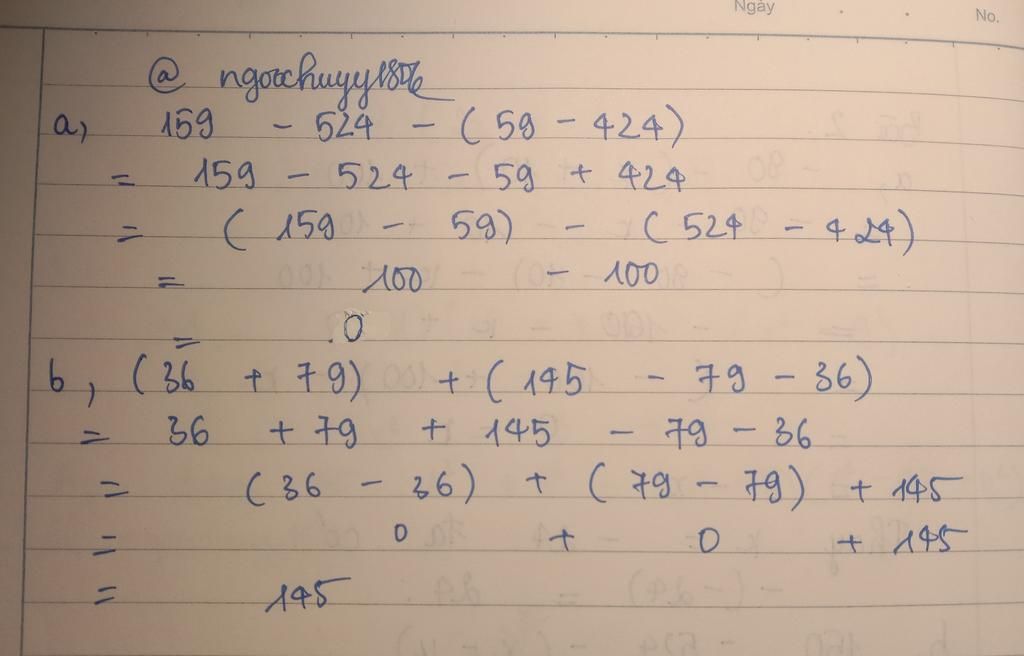 Ngày
No.
@ ngocchuyy1806
a, 159 - 524 - ( 59 - 424)
= 159 - 524 - 59 + 424
= ( 159 - 59) - ( 524 - 424)
= 100 - 100
= 0
b, (36 + 79) + ( 145 - 79 - 36)
= 36 + 79 + 145 - 79 - 36
= (36 - 36) + ( 79 - 79) + 145
= 0 + 0 + 145
= 145